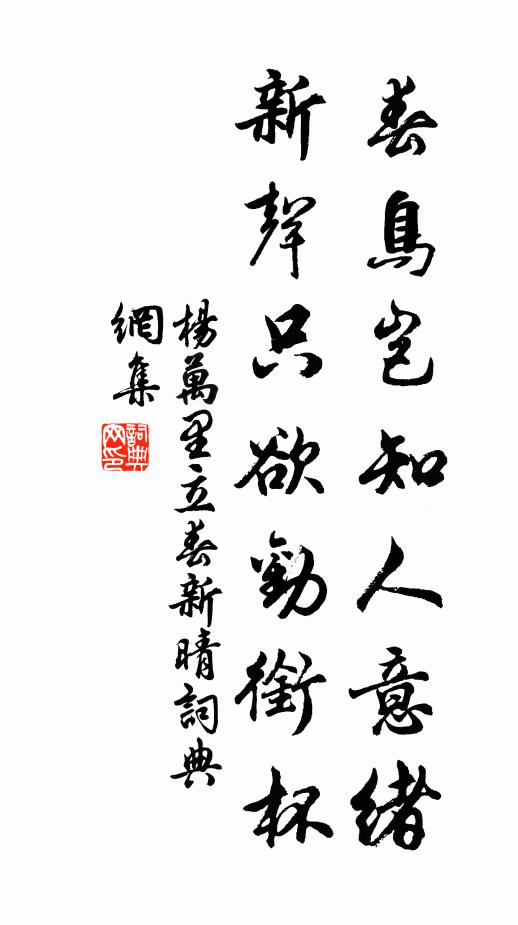 春鳥豈知人意緒
新聲只欲勸銜杯
楊萬里立春新晴詞典
網集
詞典網印